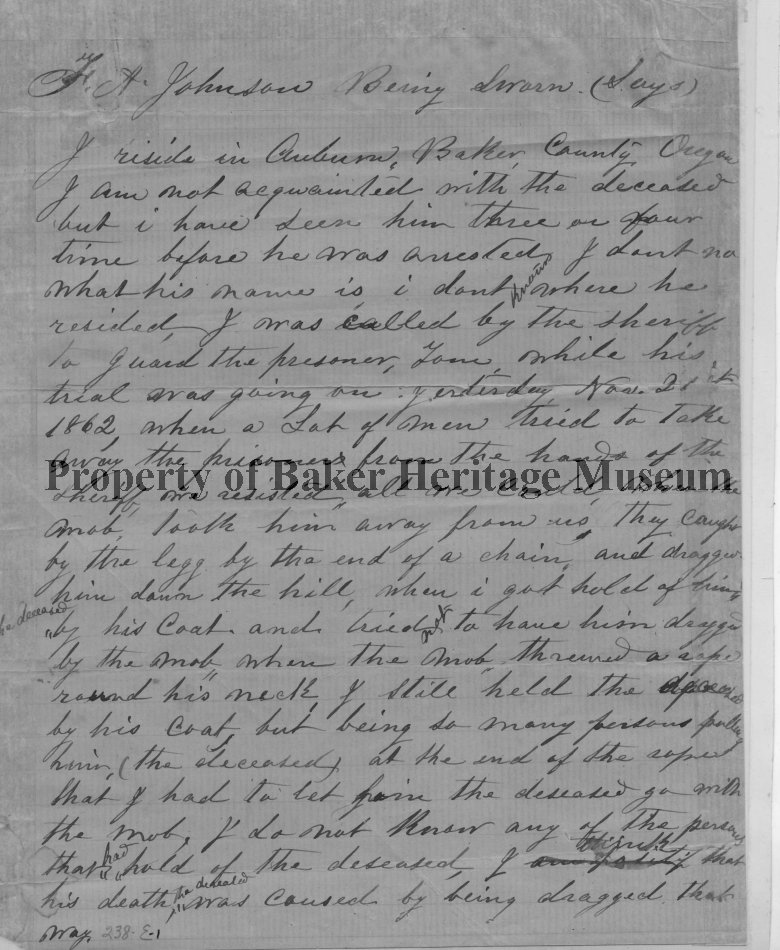 F. A. Johnson Being Sworn. (Says)
I riside in Auburn, Baker County Oregon
I am not acquainted with the deceased
but i have seen him three or four
time before he was arrested, I dont no
what his name is, i dont known where he
resided, I was called by the sheriff
to guard the presoner, Tom, while his
trial was going on yerterday Nov. 21st
1862 when a Lot of men tried to take
away the prisoner from the hands of the
Property of Baker Heritage Museum
sheriff, we resisted all we could, when the
mob, toolk him away from us, they caught
by the legg by the end of a chain, and dragged
him down the hill, when i got hold of him
the deceased
by his coat and tried not to have him dragged
by the mob, when the mob threwed a rope
round his neck, I still held the deceased
by his coat, but being so many persons pulling
him, (the deceased) at the end of the rope
that I had to let the deceased go with
the mob, I do not know any of the persons
that had hold of the deceased, I think that
his death, the deceased was caused by being dragged that
way. 238-E-1